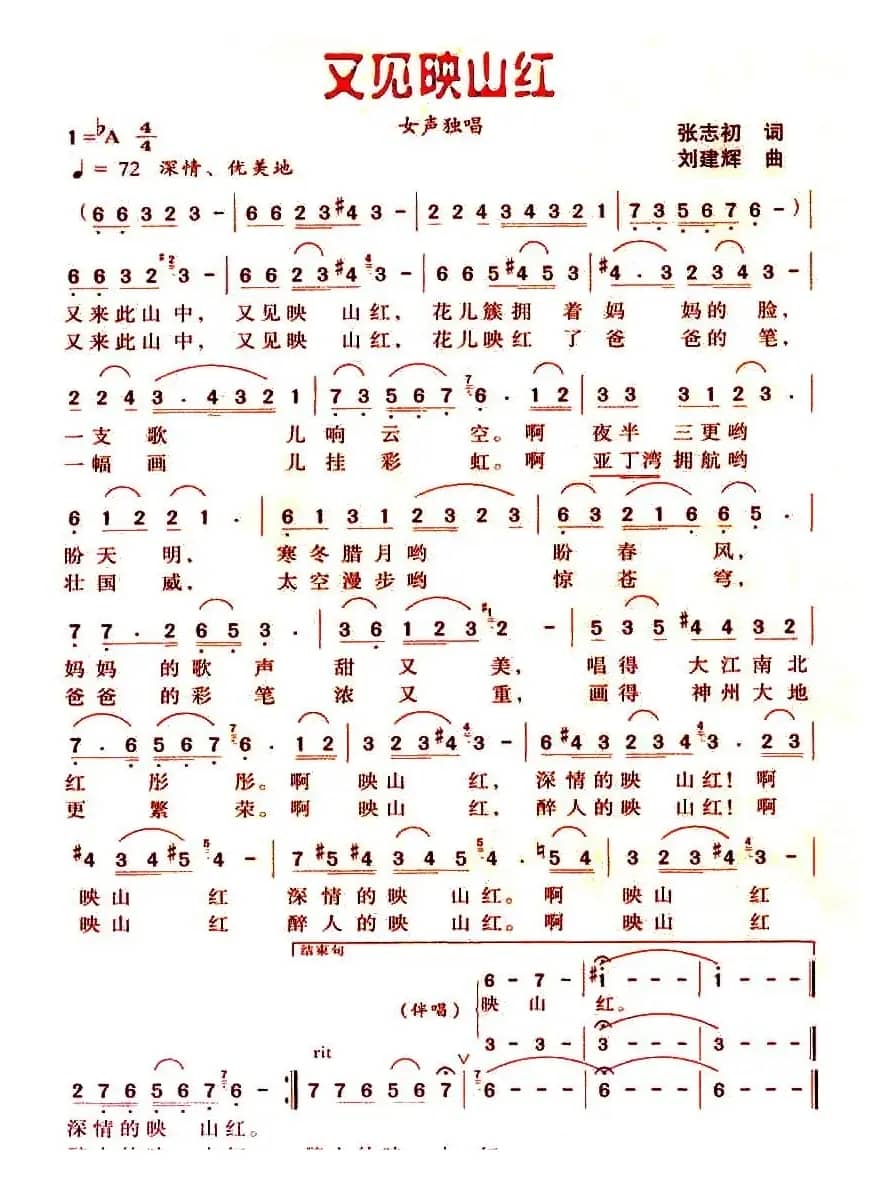 又见映山红
女声独唱
1=♭A 4/4
张志初 词
♩= 72 深情、优美地
刘建辉 曲
(6 6 3 2 3 3 - | 6 6 2 3 #4 3 - | 2 2 4 3 4 3 2 1 | 7 3 5 6 7 6 - )|
6 6 3 2 3 - | 6 6 2 3 #4 3 - | 6 6 5 #4 5 3 | #4 . 3 2 3 4 3 - |
又来此山中, 又见映 山红, 花儿簇拥 着 妈 妈的 脸,
又来此山中, 又见映 山红, 花儿映红 了 爸 爸的 笔,
2 2 4 3 . 4 3 2 1 | 7 3 5 6 7 6 . 1 2 | 3 3 3 1 2 3 |
一支 歌 儿 响 云 空。啊 夜半 三更哟
一幅 画 儿 挂 彩 虹。啊 亚丁湾拥航哟
6 1 2 2 1 . | 6 1 3 1 2 3 2 3 | 6 3 2 1 6 6 5 . |
盼天 明, 寒冬腊月哟 盼 春 风,
壮国 威, 太空漫步哟 惊 苍 穹,
7 7 . 2 6 5 3 . | 3 6 1 2 3 2 - | 5 3 5 #4 4 3 2 |
妈妈 的歌 声 甜 又 美, 唱得 大江南北
爸爸 的彩 笔 浓 又 重, 画得 神州大地
7 . 6 5 6 7 6 . 1 2 | 3 2 3 #4 3 - | 6 #4 3 2 3 4 3 . 2 3 |
红 彤 彤。啊 映山 红, 深情的映 山红! 啊
更 繁 荣。啊 映山 红, 醉人的映 山红! 啊
#4 3 4 #5 4 - | 7 #5 #4 3 4 5 4 . ♮5 4 | 3 2 3 #4 3 - |
映山 红 深情的映 山红。啊 映山 红
映山 红 醉人的映 山红。啊 映山 红
结束句
6 - 7 - | #1 - 1 - | 1 - ‖
(伴唱) 映 山 红。
3 - 3 - | 3 - 3 - | 3 - ‖
rit
2 7 6 5 6 7 6 - :‖ 7 7 6 5 6 7 | 6 - 6 - | 6 - ‖
深情的映 山红。